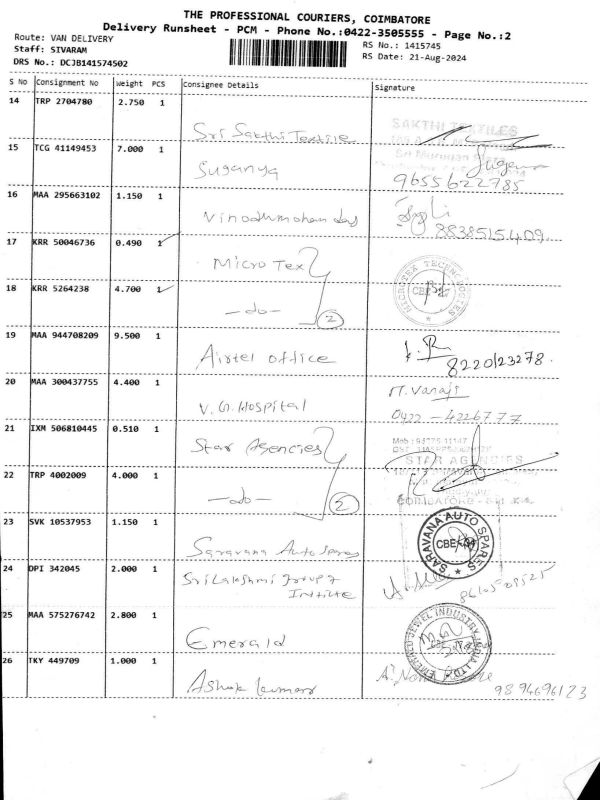 THE PROFESSIONAL COURIERS, COIMBATORE
Delivery Runsheet - PCM - Phone No.:0422-3505555 - Page No.:2
Route: VAN DELIVERY
RS No.: 1415745
Staff: SIVARAM
RS Date: 21-Aug-2024
DRS No.: DCJB141574502
S No Consignment No Weight PCS Consignee Details Signature
14 TRP 2704780 2.750 1
Sri Sakthi Textile
SAKTHI TEXTILES
15 TCG 41149453 7.000 1
Suganya
Sugany
9655622785
16 MAA 295663102 1.150 1
Vinodhmohan das
8838515409
17 KRR 50046736 0.490 1
Micro Tex
MICROTEX TECHNOLOGIES
18 KRR 5264238 4.700 1
-do- 2
19 MAA 944708209 9.500 1
Airtel office
8220123278
20 MAA 300437755 4.400 1
V.G. Hospital
M. Vanaji
0422 - 4226777
21 IXM 506810445 0.510 1
Star Agencies
STAR AGENCIES
22 TRP 4002009 4.000 1
-do- 2
COIMBATORE
23 SVK 10537953 1.150 1
Saravana Auto Spares
SARAVANA AUTO SPARES
24 DPI 342045 2.000 1
Sri Lakshmi group
25 MAA 575276742 2.800 1
Emerald
EMERALD JEWEL INDUSTRY INDIA LTD
26 TKY 449709 1.000 1
Ashok kumar
9894696123